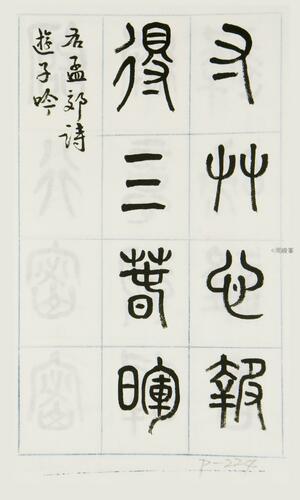 寸艸心報
得三春暉
右孟郊詩
遊子吟
P-224